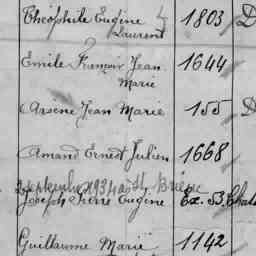 Théophile Eugène 1803 D
Laurent
Emile François Jean 1644
Marie
Arsène Jean Marie 155 D
Amand Ernest Julien 1668
septembre 1934 à St Brieuc
Joseph Pierre Eugène Ex. 53, Chat
Guillaume Marie 1142